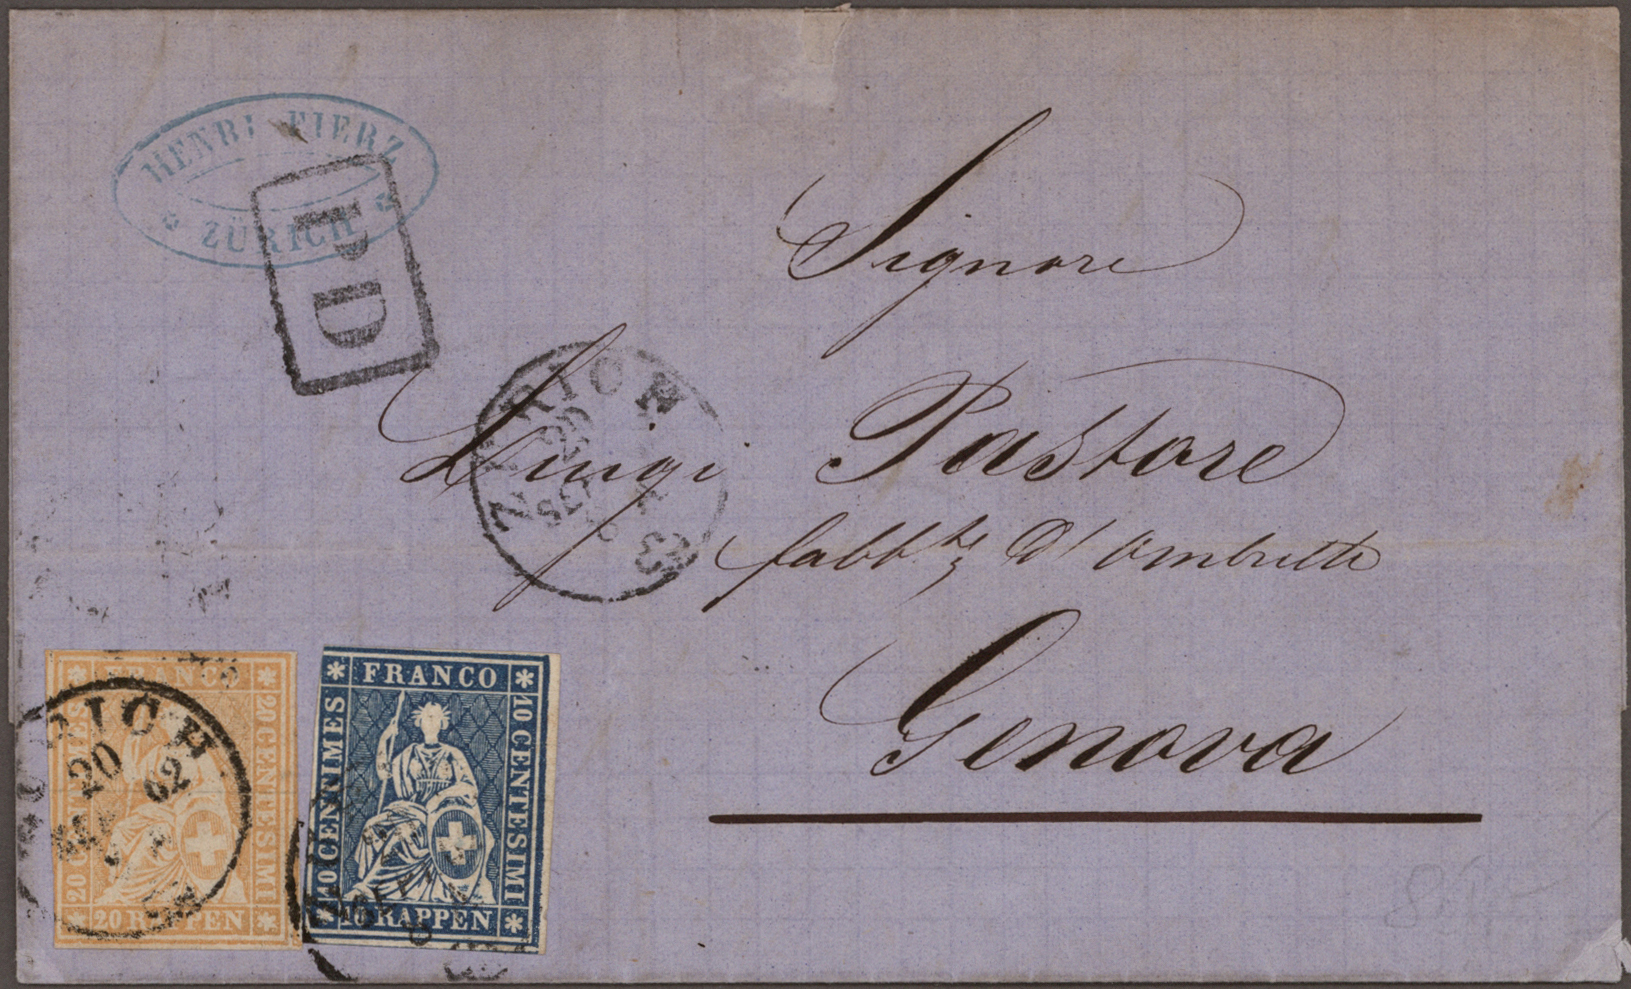 HENRI FIERZ
ZÜRICH
PD
Signore
Luigi Pastore
fabbte d'Ombrelle
Genova
ZÜRICH
20
SEPT
62
FRANCO
20 CENTIMES
20 CENTESIMI
20 RAPPEN
RICH
20 62
FRANCO
10 CENTIMES
10 CENTESIMI
10 RAPPEN